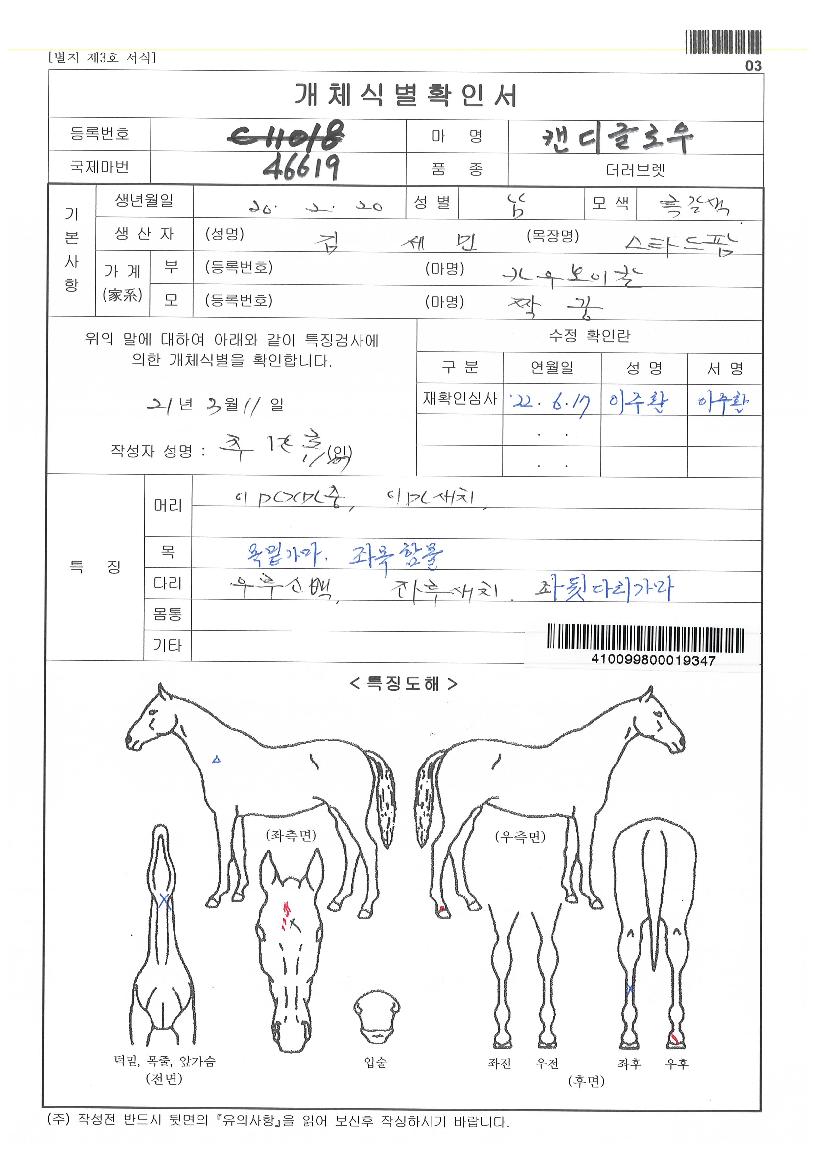 [별지 제3호 서식]
03
개체식별확인서
등록번호 C11018 마 명 캔디글로우
국제마번 46619 품 종 더러브렛
기본사항
생년월일 20. 2. 20 성별 모색 흑갈색
생산자 (성명) 김 세 민 (목장명) 스타드팜
가계 (家系) 부 (등록번호) (마명) 카우보이칼
모 (등록번호) (마명) 짝꿍
위의 말에 대하여 아래와 같이 특징검사에
의한 개체식별을 확인합니다.
21년 3월 11일
작성자 성명 : (인)
수정 확인란
구분 연월일 성명 서명
재확인심사 '22. 6. 17 이주환 이주환
. .
. .
특 징
머리
목 목밑가마. 좌목함몰
다리 우후소백, 좌후새치. 좌뒷다리가마
몸통
기타
410099800019347
< 특징도해 >
(좌측면) (우측면)
턱밑, 목줄, 앞가슴
(전면)
입술
좌전 우전 좌후 우후
(후면)
(주) 작성전 반드시 뒷면의 『유의사항』을 읽어 보신후 작성하시기 바랍니다.